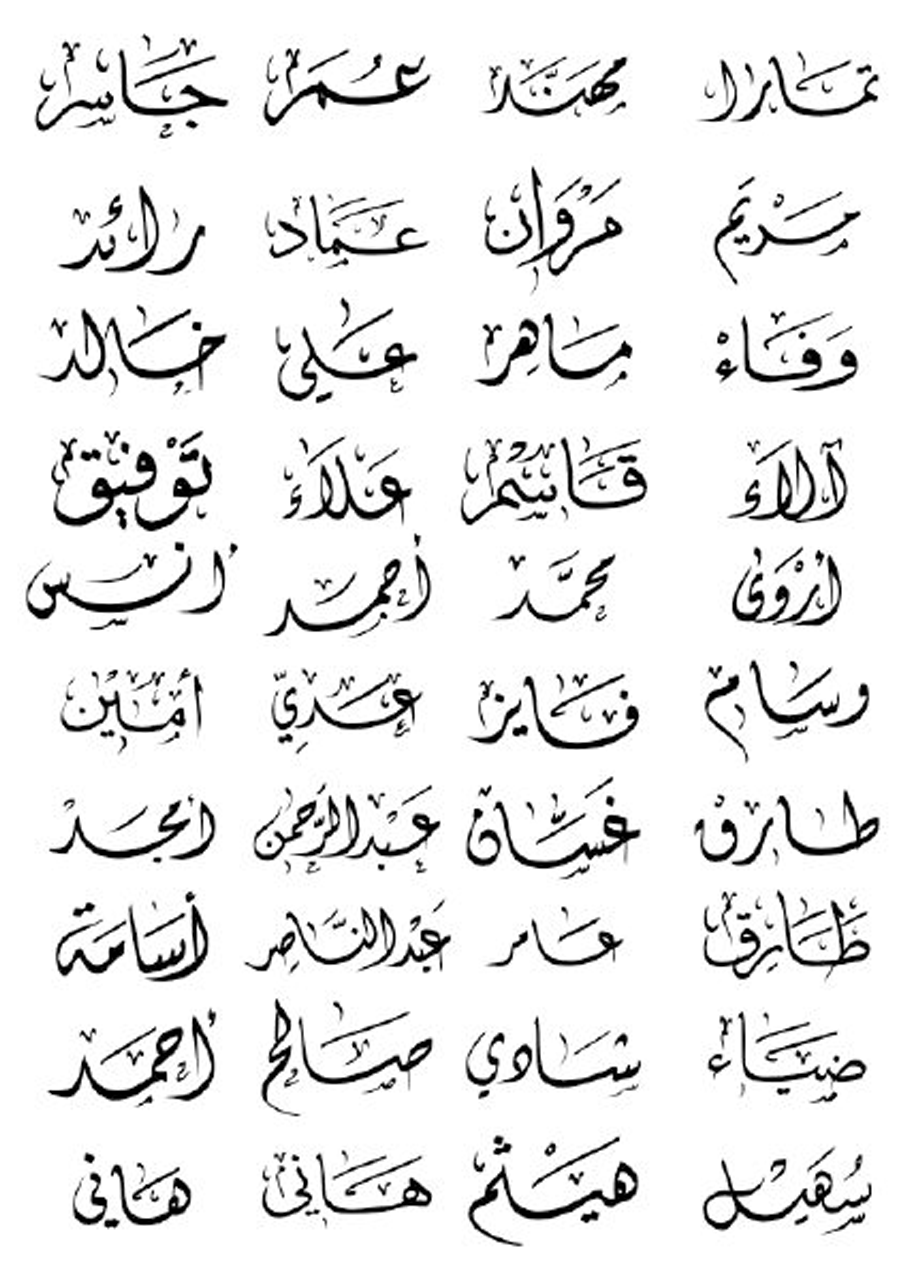 تمارا مهنّد عمر جاسر
مريم مروان عماد رائد
وفاء ماهر علي خالد
آلاء قاسم علاء توفيق
أروى محمّد أحمد أنس
وسام فايز عدي أمين
طارق غسّان عبدالرّحمن أمجد
طارق عامر عبدالنّاصر أسامة
ضياء شادي صالح أحمد
سهيل هيثم هاني هاني